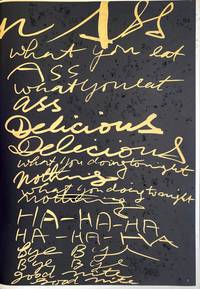 n ASS
what you eat
ASS
what you eat
ass
Delicious
Delecious
what you doing tonight
nothing
what you doing tonight
nothing
HA-HA-HA
HA-HA-HA
Bye Bye
Bye Bye
good nite
good nite